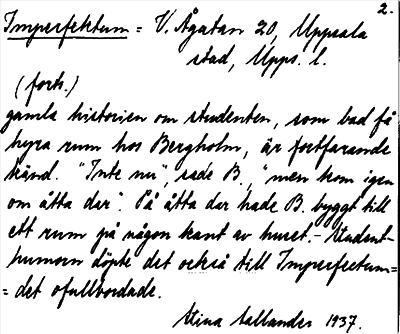 2.
Imperfektum = V. Ågatan 20, Uppsala
stad, Upps. l.
(forts.)
gamla historien om studenten, som bad få
hyra rum hos Bergholm, är fortfarande
känd. "Inte nu", sade B., "men kom igen
om åtta dar". På åtta dar hade B. byggt till
ett rum på någon kant av huset. - Student-
humorn döpte det också till Imperfectum =
= det ofullbordade.
Stina Sallander 1937.